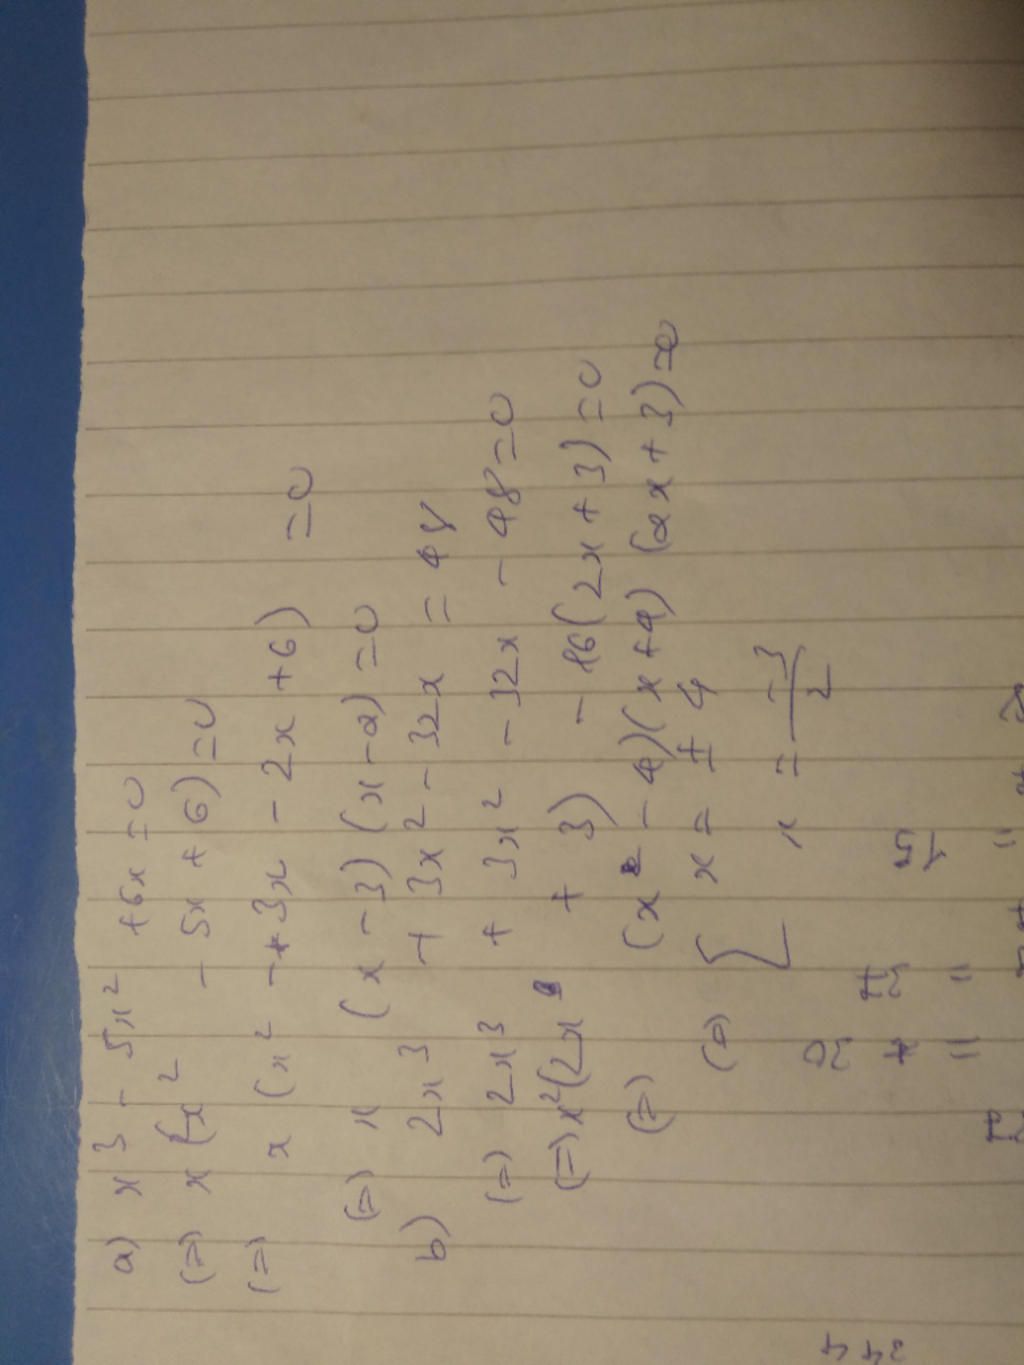 a) x³ - 5x² + 6x = 0
(=) x (x² - 5x + 6) = 0
(=) x (x² - 3x - 2x + 6) = 0
(=) x (x - 3) (x - 2) = 0
b) 2x³ + 3x² - 32x = 48
(=) 2x³ + 3x² - 32x - 48 = 0
(=) x²(2x + 3) - 16(2x + 3) = 0
(=) (x - 4)(x + 4) (2x + 3) = 0
(=) [ x = ± 4
x = -3/2
15